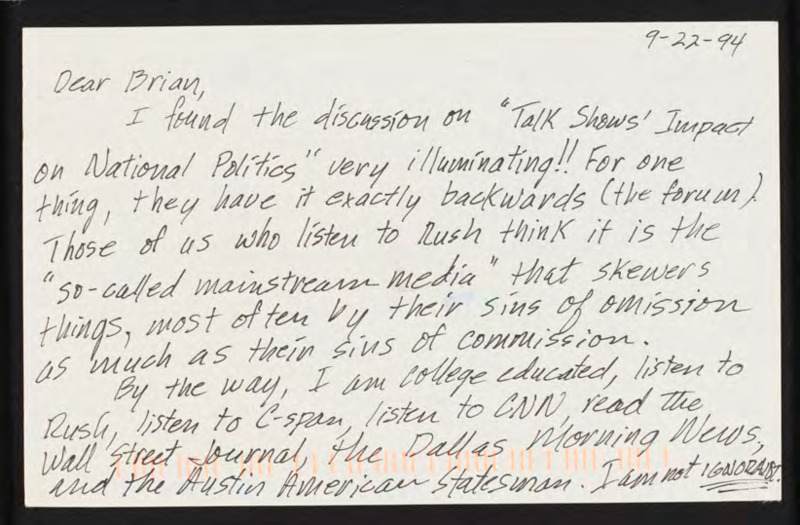 9-22-94
Dear Brian,
I found the discussion on "Talk Shows' Impact
on National Politics" very illuminating!! For one
thing, they have it exactly backwards (the forum).
Those of us who listen to Rush think it is the
"so-called mainstream media" that skewers
things, most often by their sins of omission
as much as their sins of commission.
By the way, I am college educated, listen to
Rush, listen to C-span, listen to CNN, read the
Wall Street Journal, the Dallas Morning News,
and the Austin American Statesman. I am not IGNORANT.